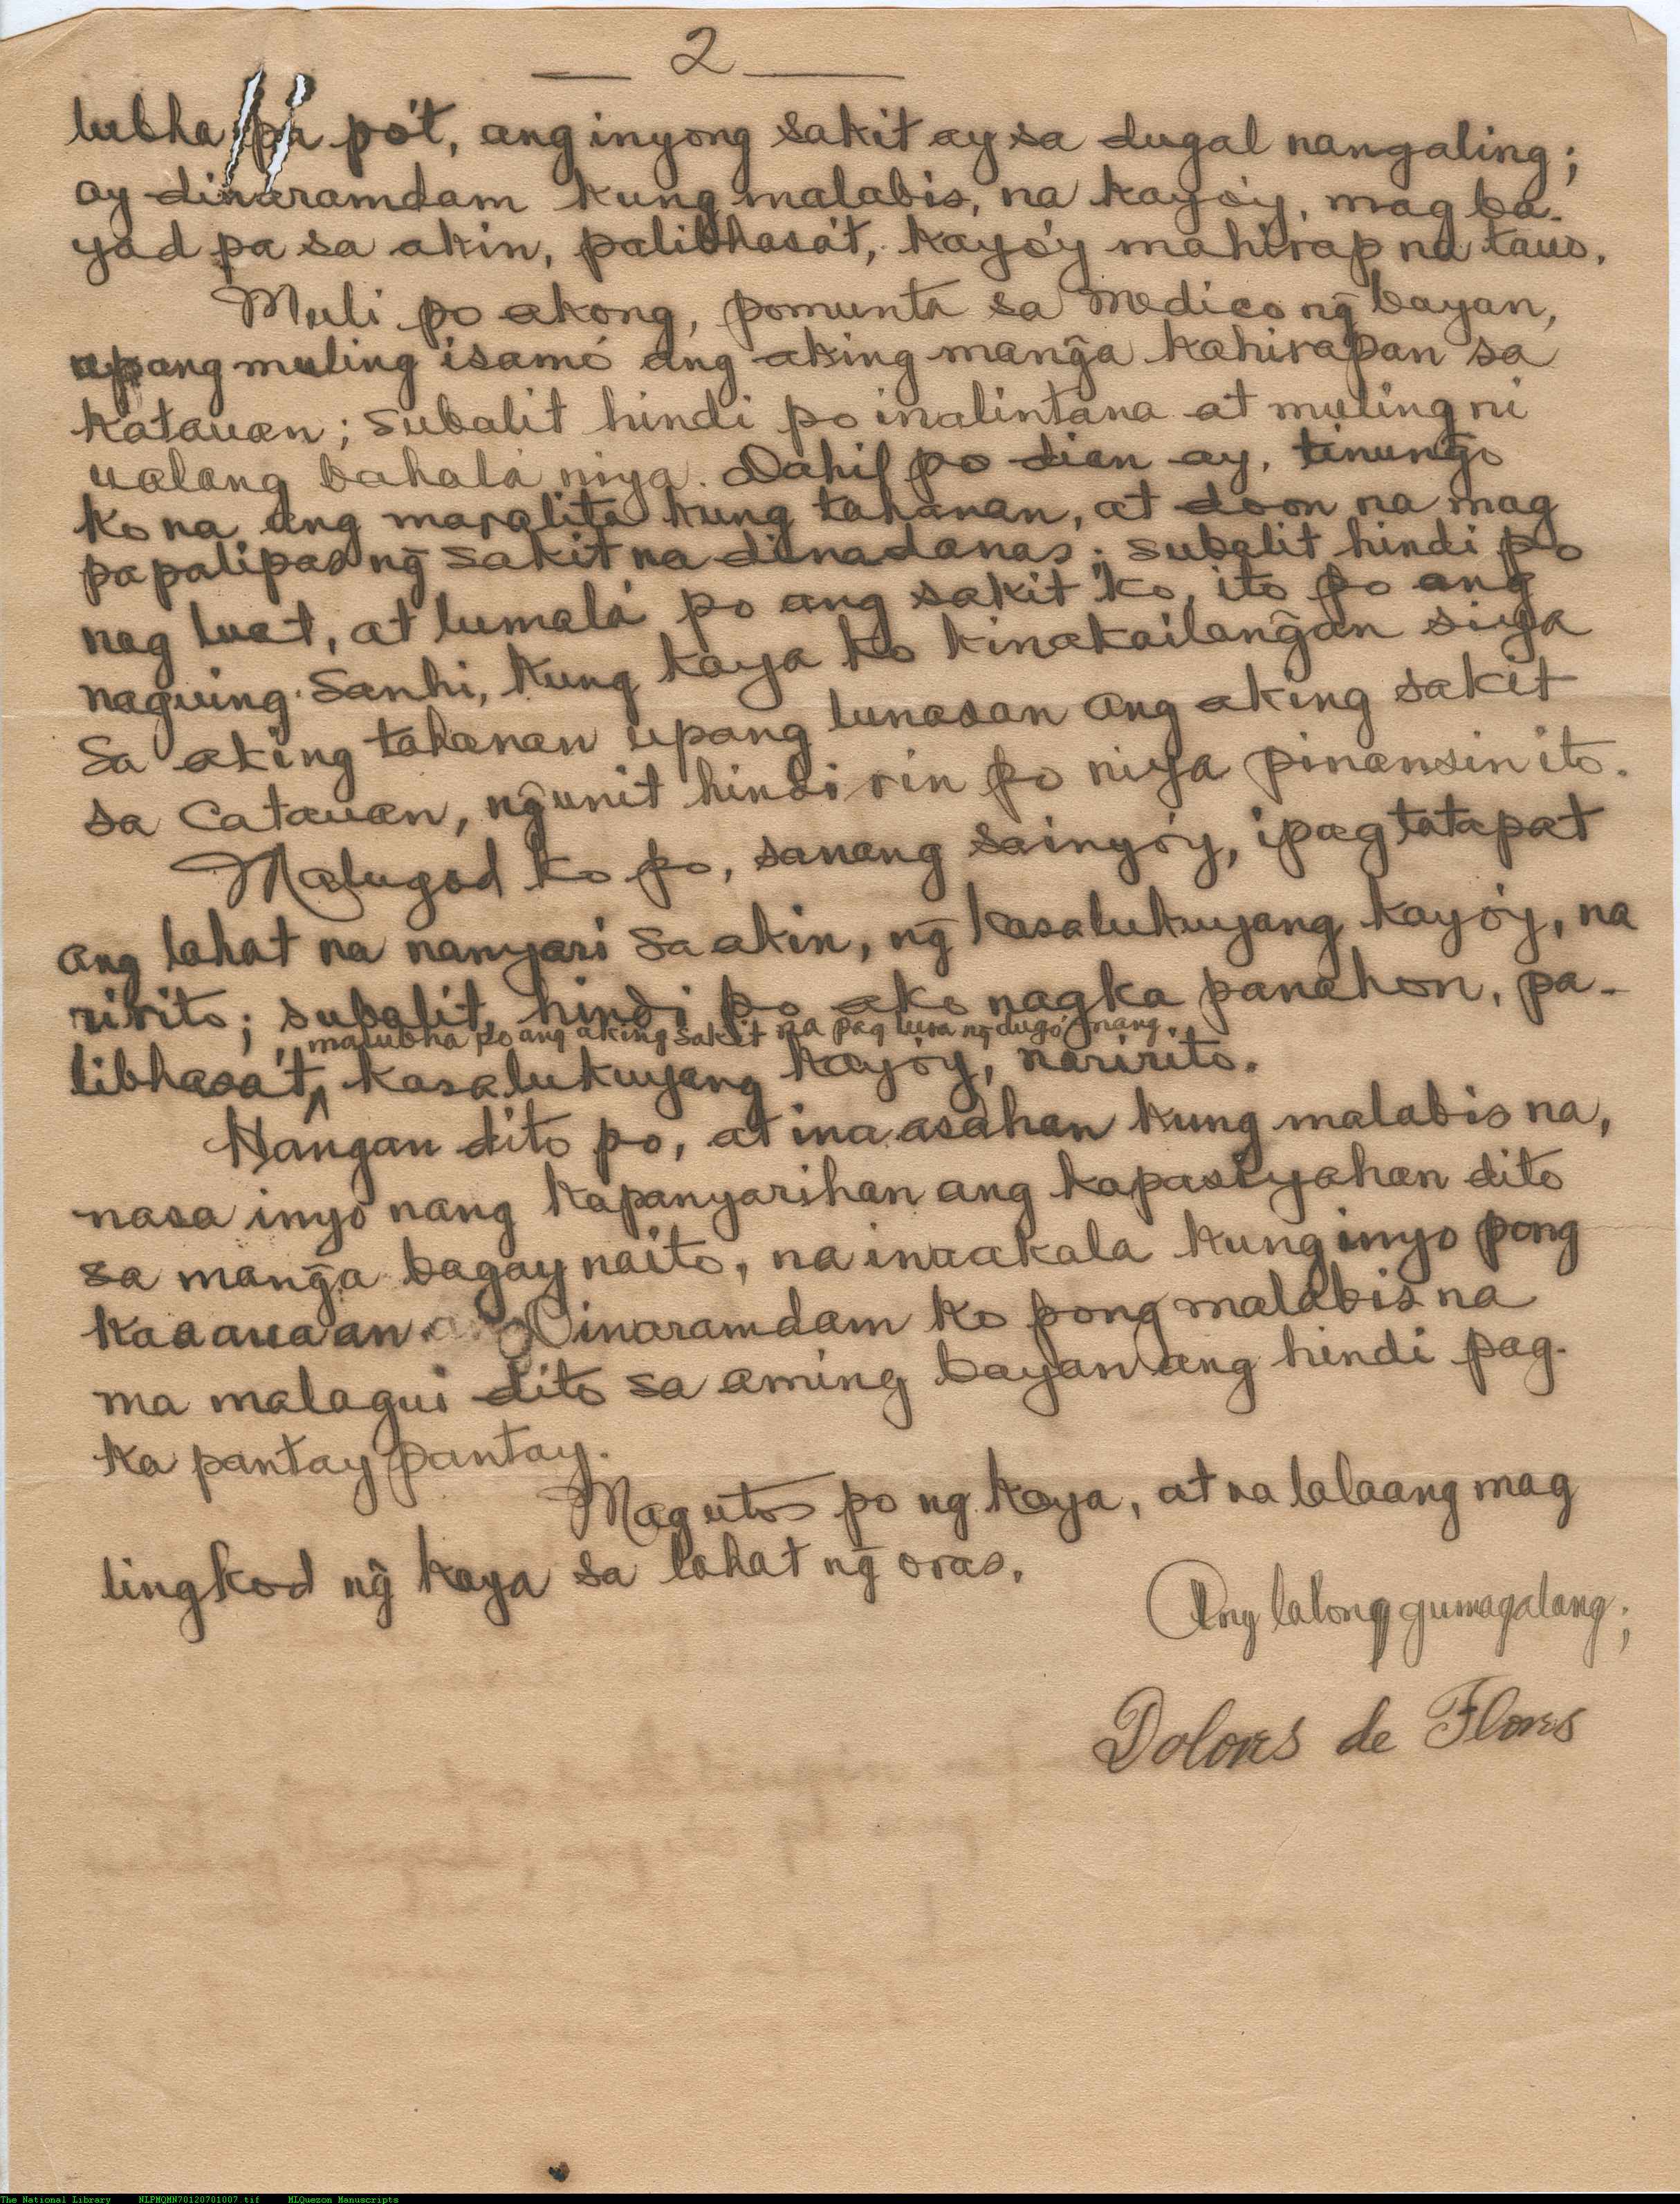 — 2 —
lubha pa pó't, ang inyong sakit ay sa dugal nangaling;
ay dinaramdam kung malabis, na kayóy, mag ba-
yad pa sa akin, palibhasa't, kayóy mahirap na taus.
Muli po akong, pomunta sa Medico ng̃ bayan,
upang muling isamó ang aking mang̃a kahirapan sa
katauan; subalit hindi po inalintana at muling ni
ualang bahalá niya. Dahil po dian ay, tinung̃o
ko na ang maralita kung tahanan, at doon na mag
papalipas ng̃ sakit na dinadanas; subalit hindi po
nag luat, at lumalá po ang sakit ko, ito po ang
naguing sanhi, kung kaya ko kinakailang̃an siya
sa aking tahanan upang lunasan ang aking sakit
sa catauan, ng̃unit hindi rin po niya pinansin ito.
Malugod ko po, sanang sainyóy, ipagtatapat
ang lahat na nanyari sa akin, ng̃ kasalukuyang kayóy, na
ririto; subalit, hindi po ako nagka panahon, pa-
malubha po ang aking sakit na pag lura ng̃ dugó, nang
libhasa't, kasalukuyang kayóy, naririto.
Hangan dito po, at ina asahan kung malabis na,
nasa inyó nang kapanyarihan ang kapasiyahan dito
sa mang̃a bagay naito, na inaakala kung inyo pong
kaaauaan. Dinaramdam ko pong malabis na
ma malagui dito sa aming bayan ang hindi pag-
ka pantay pantay.
Mag utos po ng kaya, at na lalaang mag
lingkod ng̃ kaya sa lahat ng̃ oras.
Ang lalong gumagalang;
Dolores de Flores
The National Library NLPMQMN70120701007.tif MLQuezon Manuscripts